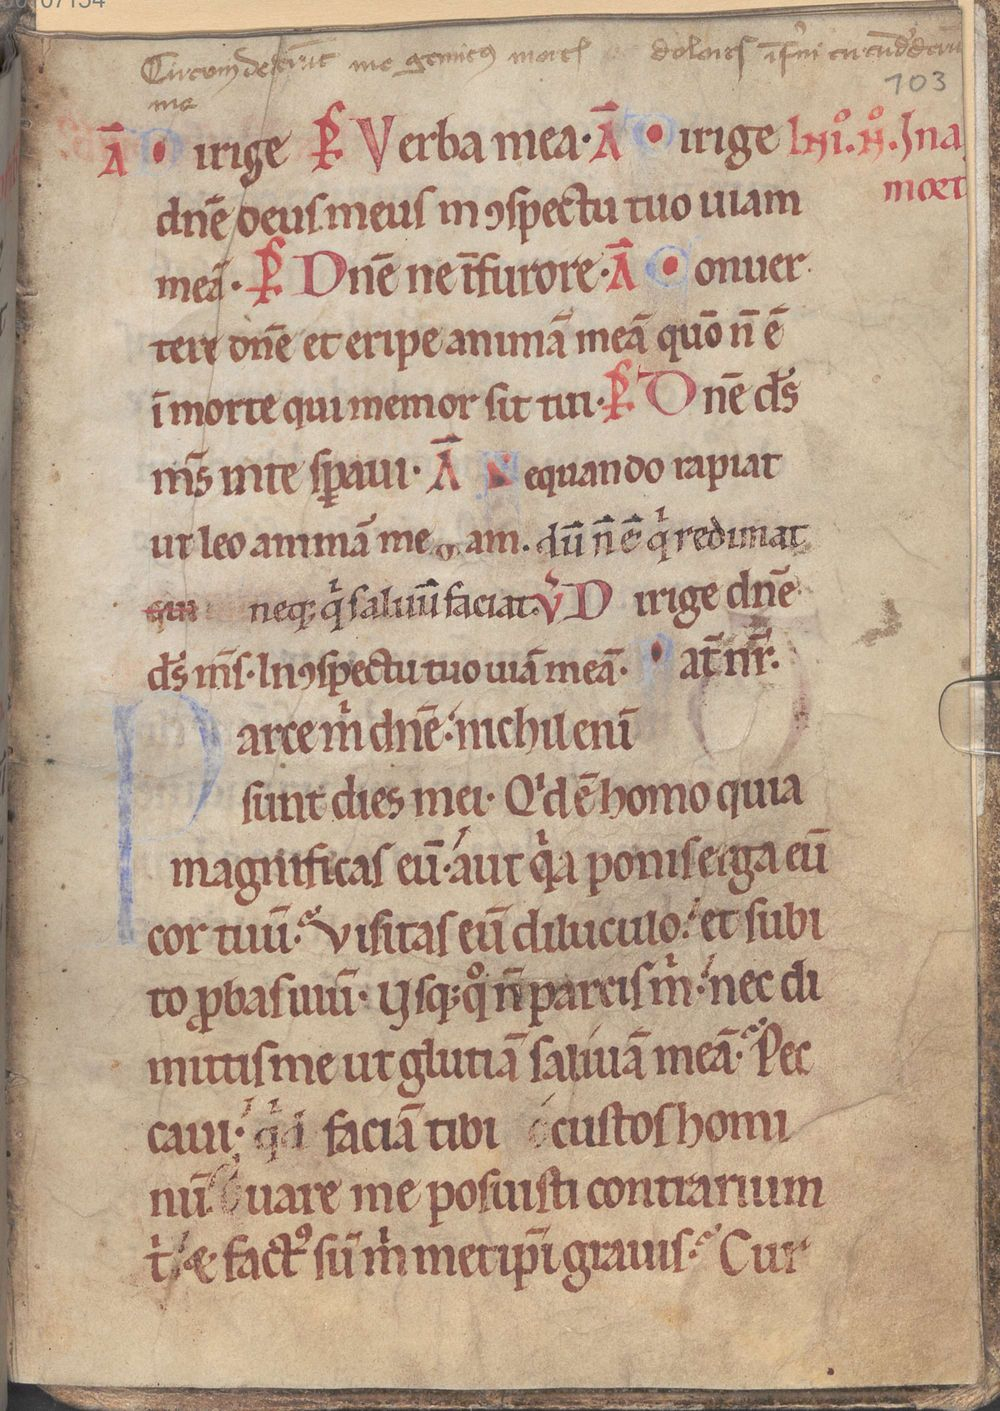 Circumdederūt me gemitꝯ mortꝭ dolores īfͬni circūdederūt
me
103
A̅ Dirige P̅S Verba mea· A̅ Dirige
dn̄e deus meus in ꝯspectu tuo uiam
meā· P̅S Dn̄e ne ī furore· A̅ Conuer
tere dn̄e et eripe animā meā quō n̄ ē
ī morte qui memor sit tui· P̅S Dn̄e ds̄
ms̄ in te sꝑaui· A̅ Nequando rapiat
ut leo animā me am. dū n̄ ē qͥ redimat
neqꝫ qͥ saluū faciat. V̅ Dirige dn̄e
ds̄ ms̄· In ꝯspectu tuo uiā meā· Pat̄ nr̄.
Parce m̥ dn̄e· nichil enī
sunt dies mei· Qͥd ē homo quia
magnificas eū· aut qͥa ponis erga eū
cor tuū· Visitas eū diluculo· et subi
to ꝓbas illū· Usqꝫ qͦ n̄ parcis mͥ· nec di
mittis me ut glutiā saliuā meā· Pec
caui· qͥd faciā tibi o custos homi
nū· Quare me posuisti contrarium
tͥ· & factꝯ sū mͥmetipī grauis· Cur